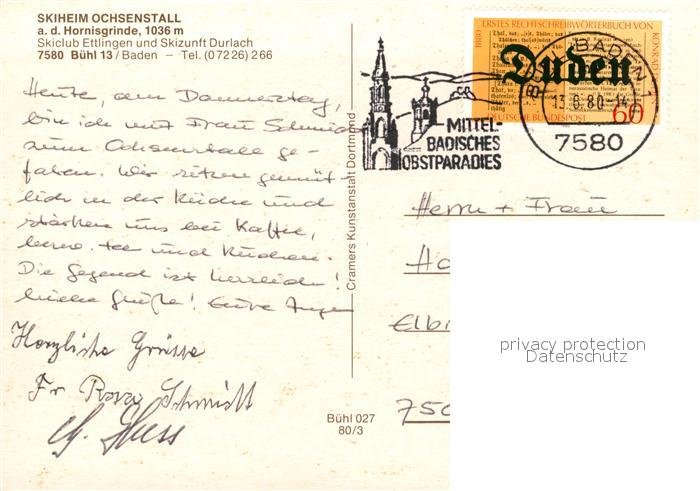 SKIHEIM OCHSENSTALL
a. d. Hornisgrinde, 1036 m
Skiclub Ettlingen und Skizunft Durlach
7580 Bühl 13 / Baden – Tel. (0 72 26) 2 66
Heute, am Donnerstag,
bin ich mit Frau Schmidt
zum Ochsenstall ge-
fahren. Wir sitzen gemüt-
lich in der Küche und
stärken uns bei Kaffee,
bezw. Tee und Kuchen.
Die Gegend ist herrlich!
Liebe Grüße! Eure
Herzliche Grüsse
Fr Rosa Schmidt
Cramers Kunstanstalt Dortmund
Bühl 027
80/3
ERSTES RECHTSCHREIBWÖRTERBUCH VON KONRAD
1880
Duden
DEUTSCHE BUNDESPOST
60
BÜHL, BADEN 1
13.8.80-14
7580
MITTEL-
BADISCHES
OBSTPARADIES
Herrn + Frau
Ho
Elbi
750
privacy protection
Datenschutz